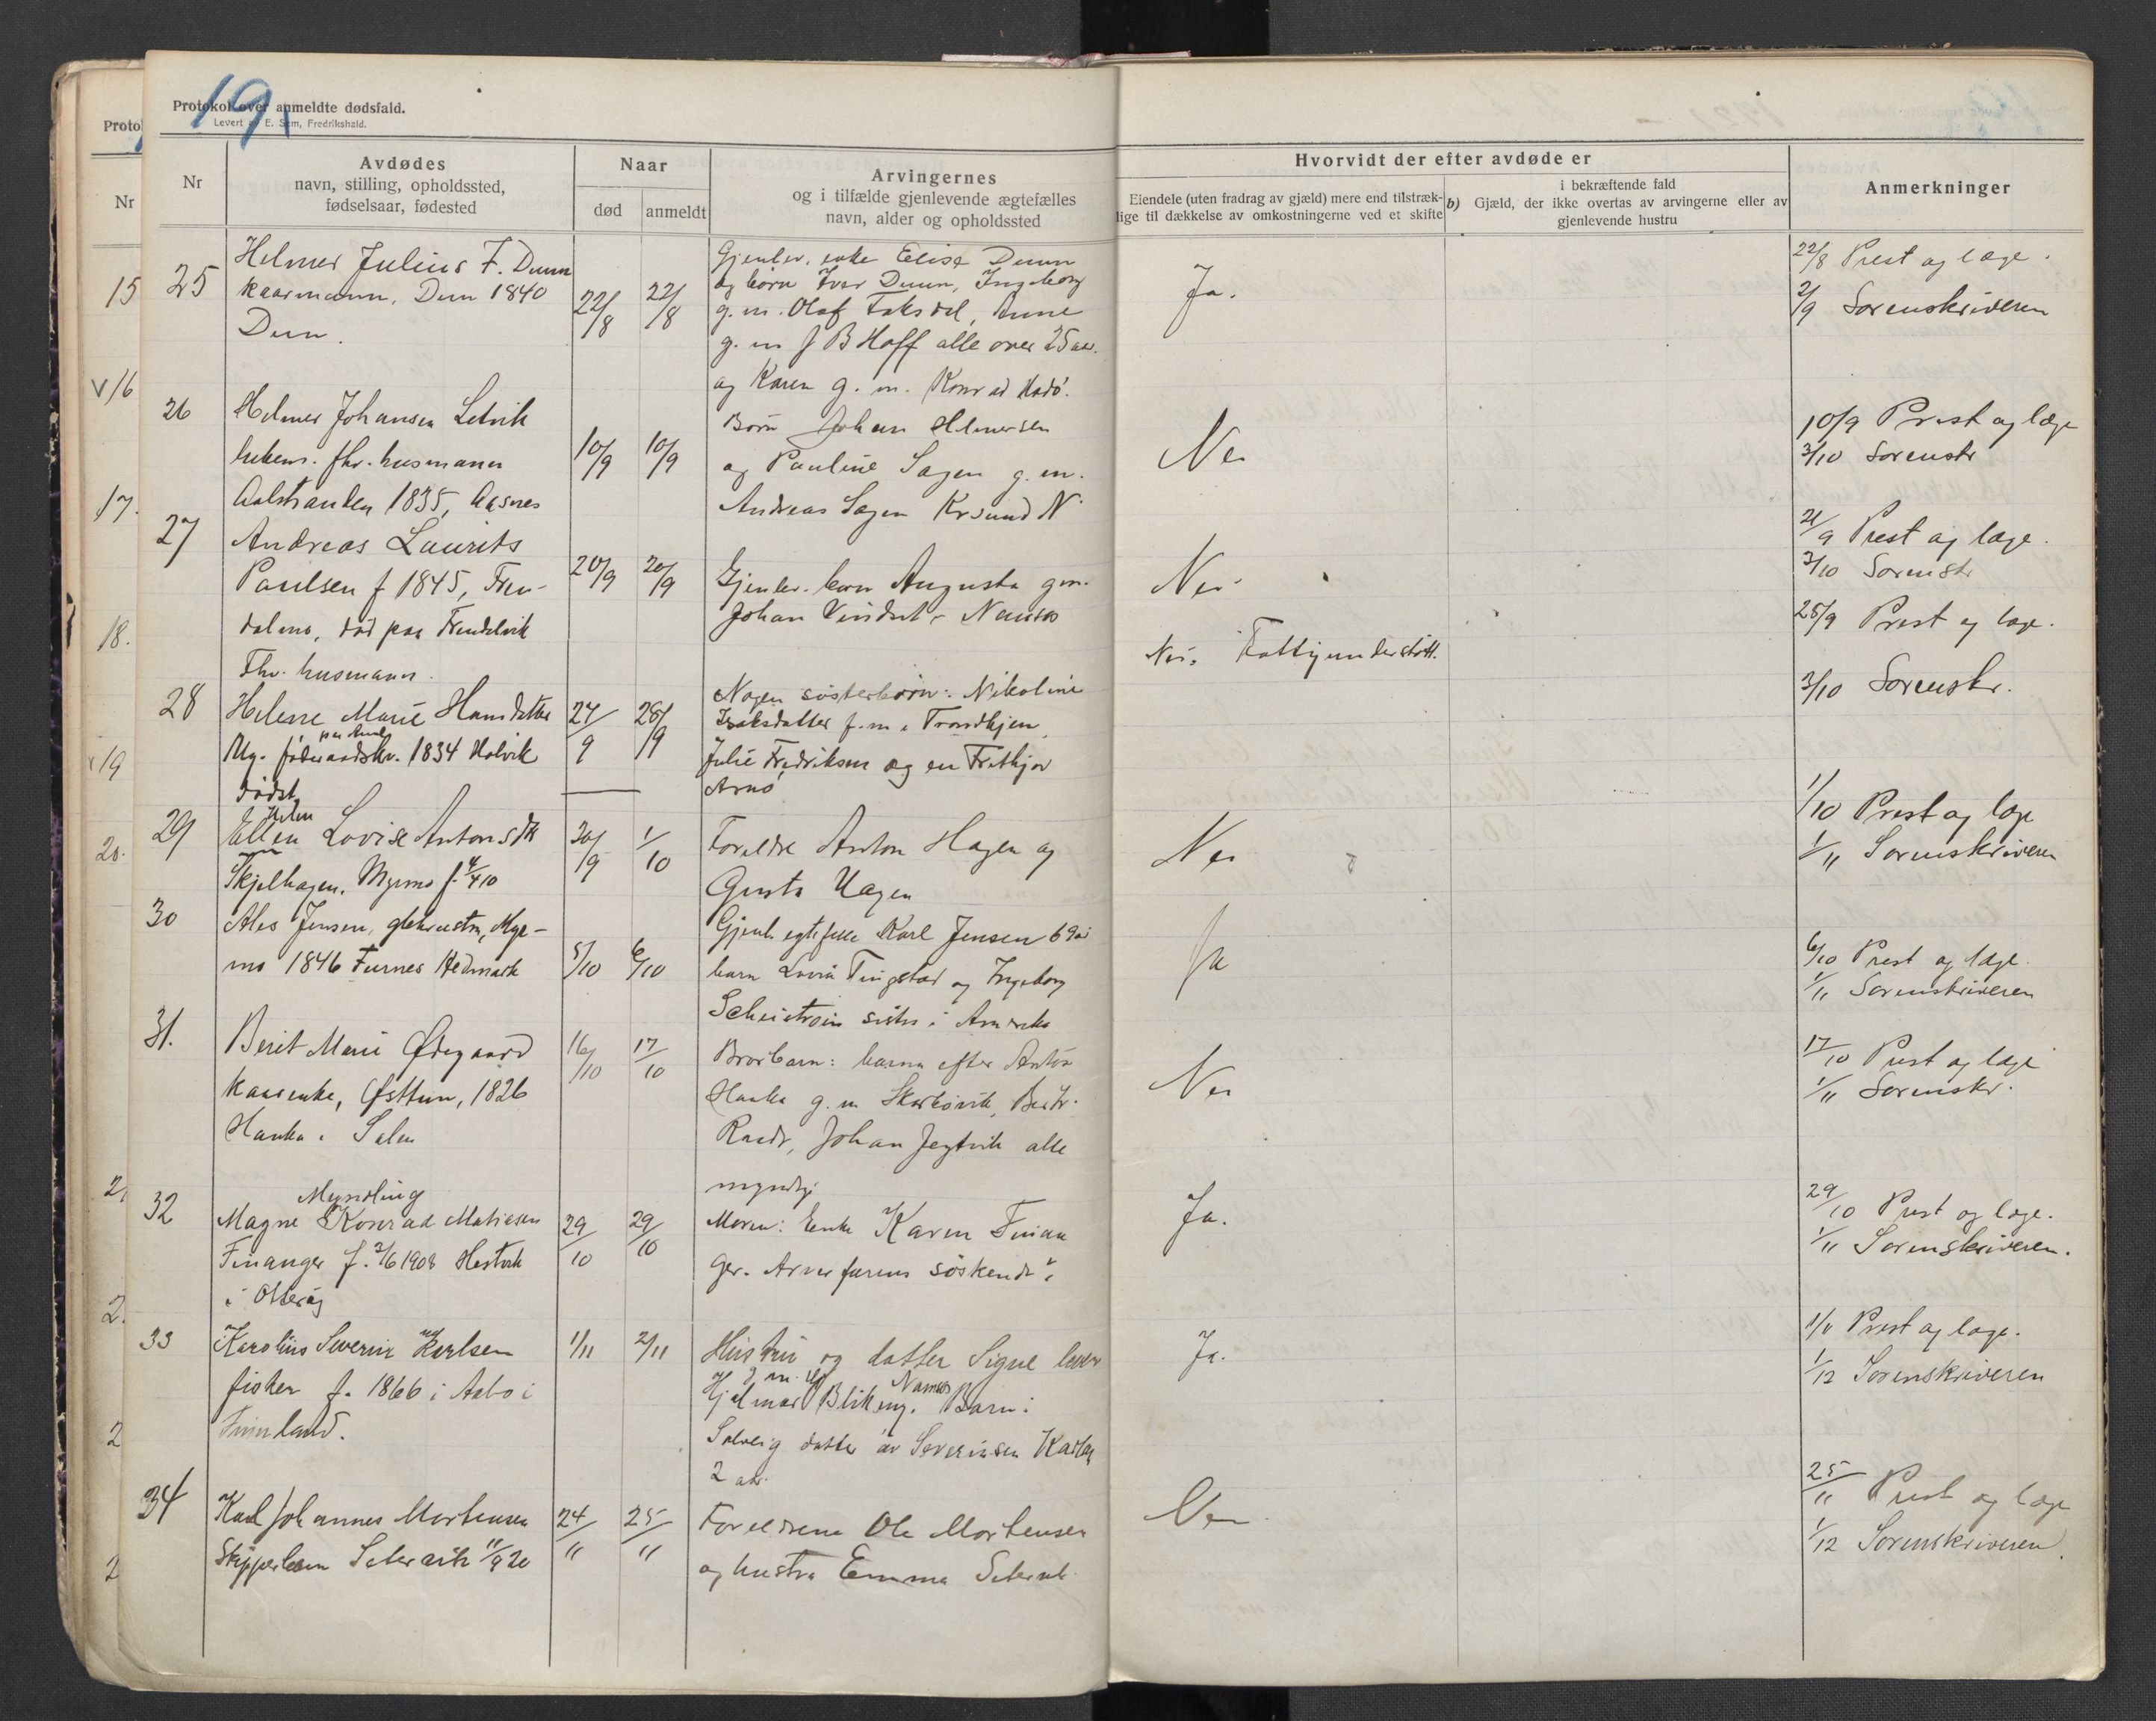 19
Protokol over anmeldte dødsfald.
Levert av E. Sem, Fredrikshald.
Proto
Nr
15
v 16
17.
18.
19
20.
2
2.
2
2
Nr
Avdødes
navn, stilling, opholdssted,
fødselsaar, fødested
Naar
død
anmeldt
Arvingernes
og i tilfælde gjenlevende ægtefælles
navn, alder og opholdssted
Hvorvidt der efter avdøde er
Eiendele (uten fradrag av gjæld) mere end tilstræk-
lige til dækkelse av omkostningerne ved et skifte
i bekræftende fald
b) Gjæld, der ikke overtas av arvingerne eller av
gjenlevende hustru
Anmerkninger
25
Helmer Julius F. Duun
kaarmann, Dun 1840
Dun.
22/8
22/8
Gjenlev. enke Elise Duun
og børn Ivar Duun, Ingeborg
g. m. Olaf Faksdal, Anne
g. m J B Hoff alle over 25 aar.
og Karen g. m. Konrad Hadø.
Ja.
22/8 Prest og læge.
2/9 Sorenskriveren
26
Helmer Johansen Letvik
fhv. husmann
Aalstranden 1835, Aasnes
10/9
10/9
Børn Johan Helmersen
og Pauline Sagen g. m.
Andreas Sagen Krsund N
Nei
10/9 Prest og læge
3/10 Sorenskr
27
Andreas Laurits
Paulsen f 1845, Fren-
dalmo, død paa Frendalvik
Fhv. husmann.
20/9
20/9
Gjenlev. barn Augusta g m.
Johan Vindset - Namsos
Nei
21/9 Prest og læge.
3/10 Sorenskr
28
Helene Marie Hansdatter
Ug. føderaadskv. 1834 Holvik
dødst
27/9
28/9
Nogen søsterbørn: Nikoline
Isaksdatter f. m. Trondhjem,
Julie Fredriksen og en Frithjov
Arnø
Nei. Fattigunderstøtt.
28/9 Prest og læge.
3/10 Sorenskr.
29
Helen
Ellen Lovise Antonsdtr
Skjelhagen, Myrmo f. 4/4 10
30/9
1/10
Foreldre Anton Hagen og
Gusta Hagen
Nei
1/10 Prest og læge
1/11 Sorenskriveren
30
Ales Jensen, gbrhustru, Myr-
mo 1846 Furnes Hedmark
5/10
6/10
Gjenl. egtefelle Karl Jensen 69 aar
barn Lovise Tingstad og Ingeborg
søster i Amerika
Ja
6/10 Prest og læge.
1/11 Sorenskriveren
31.
Berit Marie Ødegaard
kaarenke, Østtun, 1826
Hanka i Salen
16/10
17/10
Brorbarn: barna efter Anton
Hanka g. m
Johan Jegtvik alle
myndige
Nei
17/10 Prest og læge
1/11 Sorenskr.
32
Myndling
Magne Konrad Matiesen
Finanger f. 2/6 1908 Hestvik
i Otterøy
29/10
29/10
Moren: Enke Karen Finan
ger. Arver farens søskende?
Ja.
29/10 Prest og læge.
1/11 Sorenskriveren.
33
Karolius Severin Karlsen
fisker f. 1866 i Aabo i
Finnland.
1/11
2/11
Hustru og datter Signe lever
g. m.
Hjalmar Blikeng. Namsos Barn:
Solveig datter av Severinsen Karlsen
2 aar.
Ja.
1/11 Prest og læge.
1/12 Sorenskriveren
34
Karl Johannes Mortensen
Skipperbarn Setervik 11/9 20
24/11
25/11
Foreldrene Ole Mortensen
og hustru Emma Setervik
Nei
25/11 Prest og læge
1/12 Sorenskriveren.